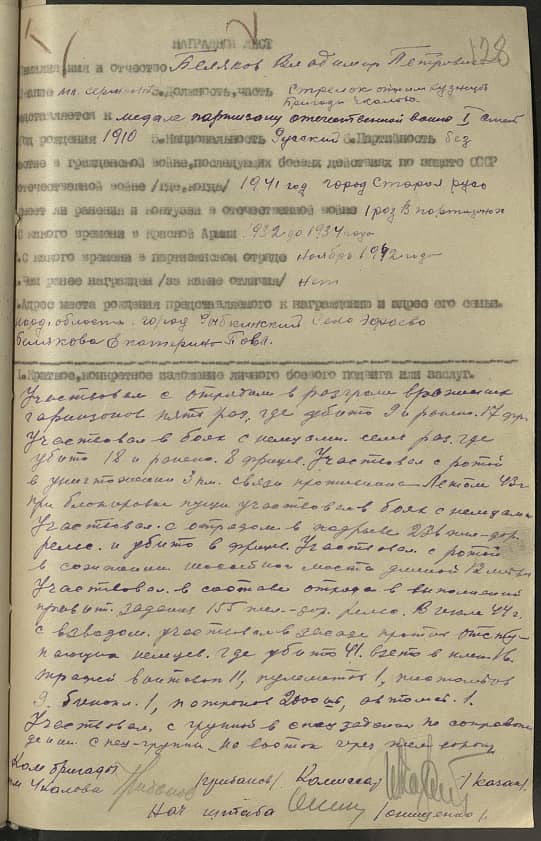 128
НАГРАДНОЙ ЛИСТ
Фамилия имя и отчество Беляков Владимир Петрович
Звание мл. сержант 3. Должность, часть Стрелок отряд
Бригады Чкалова
к медали партизану отечественной войны I степ
Год рождения 1910 5. Национальность Русский 6. Партийность без
в гражданской войне, последующих боевых действиях по защите СССР
отечественной войне /где, когда/ 1941 год. город Старая руса
ли ранения и контузии в отечественной войне 1 раз В
С какого времени в Красной Армии 1932 до 1934 года
С какого времени в партизанском отряде Ноябрь 1942 года
Чем ранее награжден /за какие отличия/ Нет
Адрес места рождения представляемого к награждению и адрес его семьи.
области. город село
Белякова Екатерина
1. Краткое, конкретное изложение личного боевого подвига или заслуг.
Участвовал с отрядом в разгроме вражеских
гарнизонов пять раз, где убито 9 и ранено 17 фр.
Участвовал в боях с немцами. семь раз. где
убито 18 и ранено 8 фрицев. Участвовал с ротой
в уничтожении 3 км. связи противника Летом 43 г
при блокировке пущи участвовал в боях с немцами
Участвовал. с отрядом в подрыве жел-дор.
рельс. и убито 8 фрицев. Участвовал с ротой
в сожжении шоссейного моста длиной 12 метр
Участвовал. в составе отряда в выполнении
правит. задания 155 жел-дор. рельс. В июле 44 г.
с взводом. участвовал в засаде против отсту-
пающих немцев. где убито 41. взято в плен 16.
трофей винтовок 11, пулеметов 1, пистолетов
9. бинокл. 1, патронов 2000 шт, автомат. 1.
Участвовал. с группой в спец задании по сопровож
дении. спец-группы на восток через жел дорогу
Ком бригады
им Чкалова /грибанов/. Комиссар /Казак/.
Нач штаба /онищенко/.